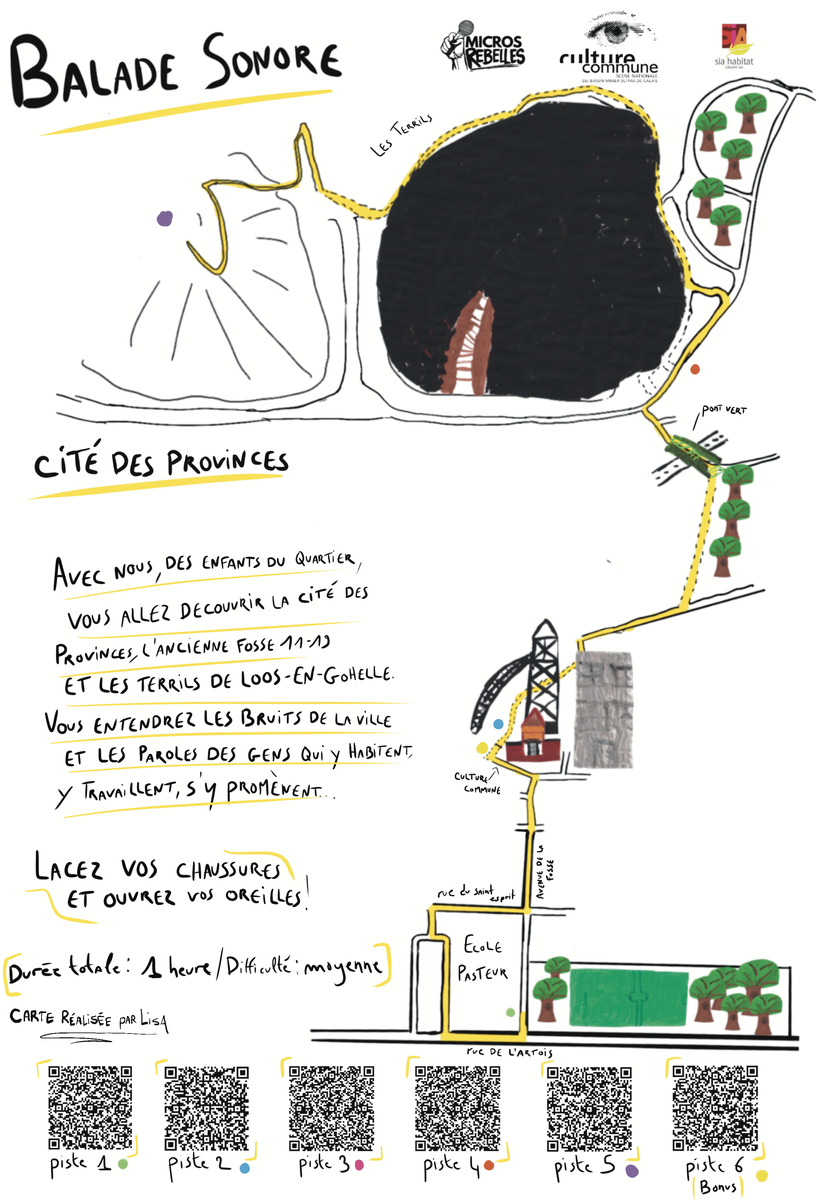 BALADE SONORE
MICROS
REBELLES
culture
commune
SCÈNE NATIONALE
DU BASSIN MINIER DU PAS DE CALAIS
SIA
sia habitat
LES TERRILS
PONT VERT
CITÉ DES PROVINCES
AVEC NOUS, DES ENFANTS DU QUARTIER,
VOUS ALLEZ DECOUVRIR LA CITÉ DES
PROVINCES, L'ANCIENNE FOSSE 11-19
ET LES TERRILS DE LOOS-EN-GOHELLE.
VOUS ENTENDREZ LES BRUITS DE LA VILLE
ET LES PAROLES DES GENS QUI Y HABITENT,
Y TRAVAILLENT, S'Y PROMÈNENT...
CULTURE
COMMUNE
LACEZ VOS CHAUSSURES
ET OUVREZ VOS OREILLES!
AVENUE DE LA
FOSSE
rue du saint
esprit
ECOLE
PASTEUR
Durée totale: 1 heure/Difficulté: moyenne
CARTE RÉALISÉE PAR LISA
rue DE L'ARTOIS
piste 1
piste 2
piste 3
piste 4
piste 5
piste 6
(Bonus)